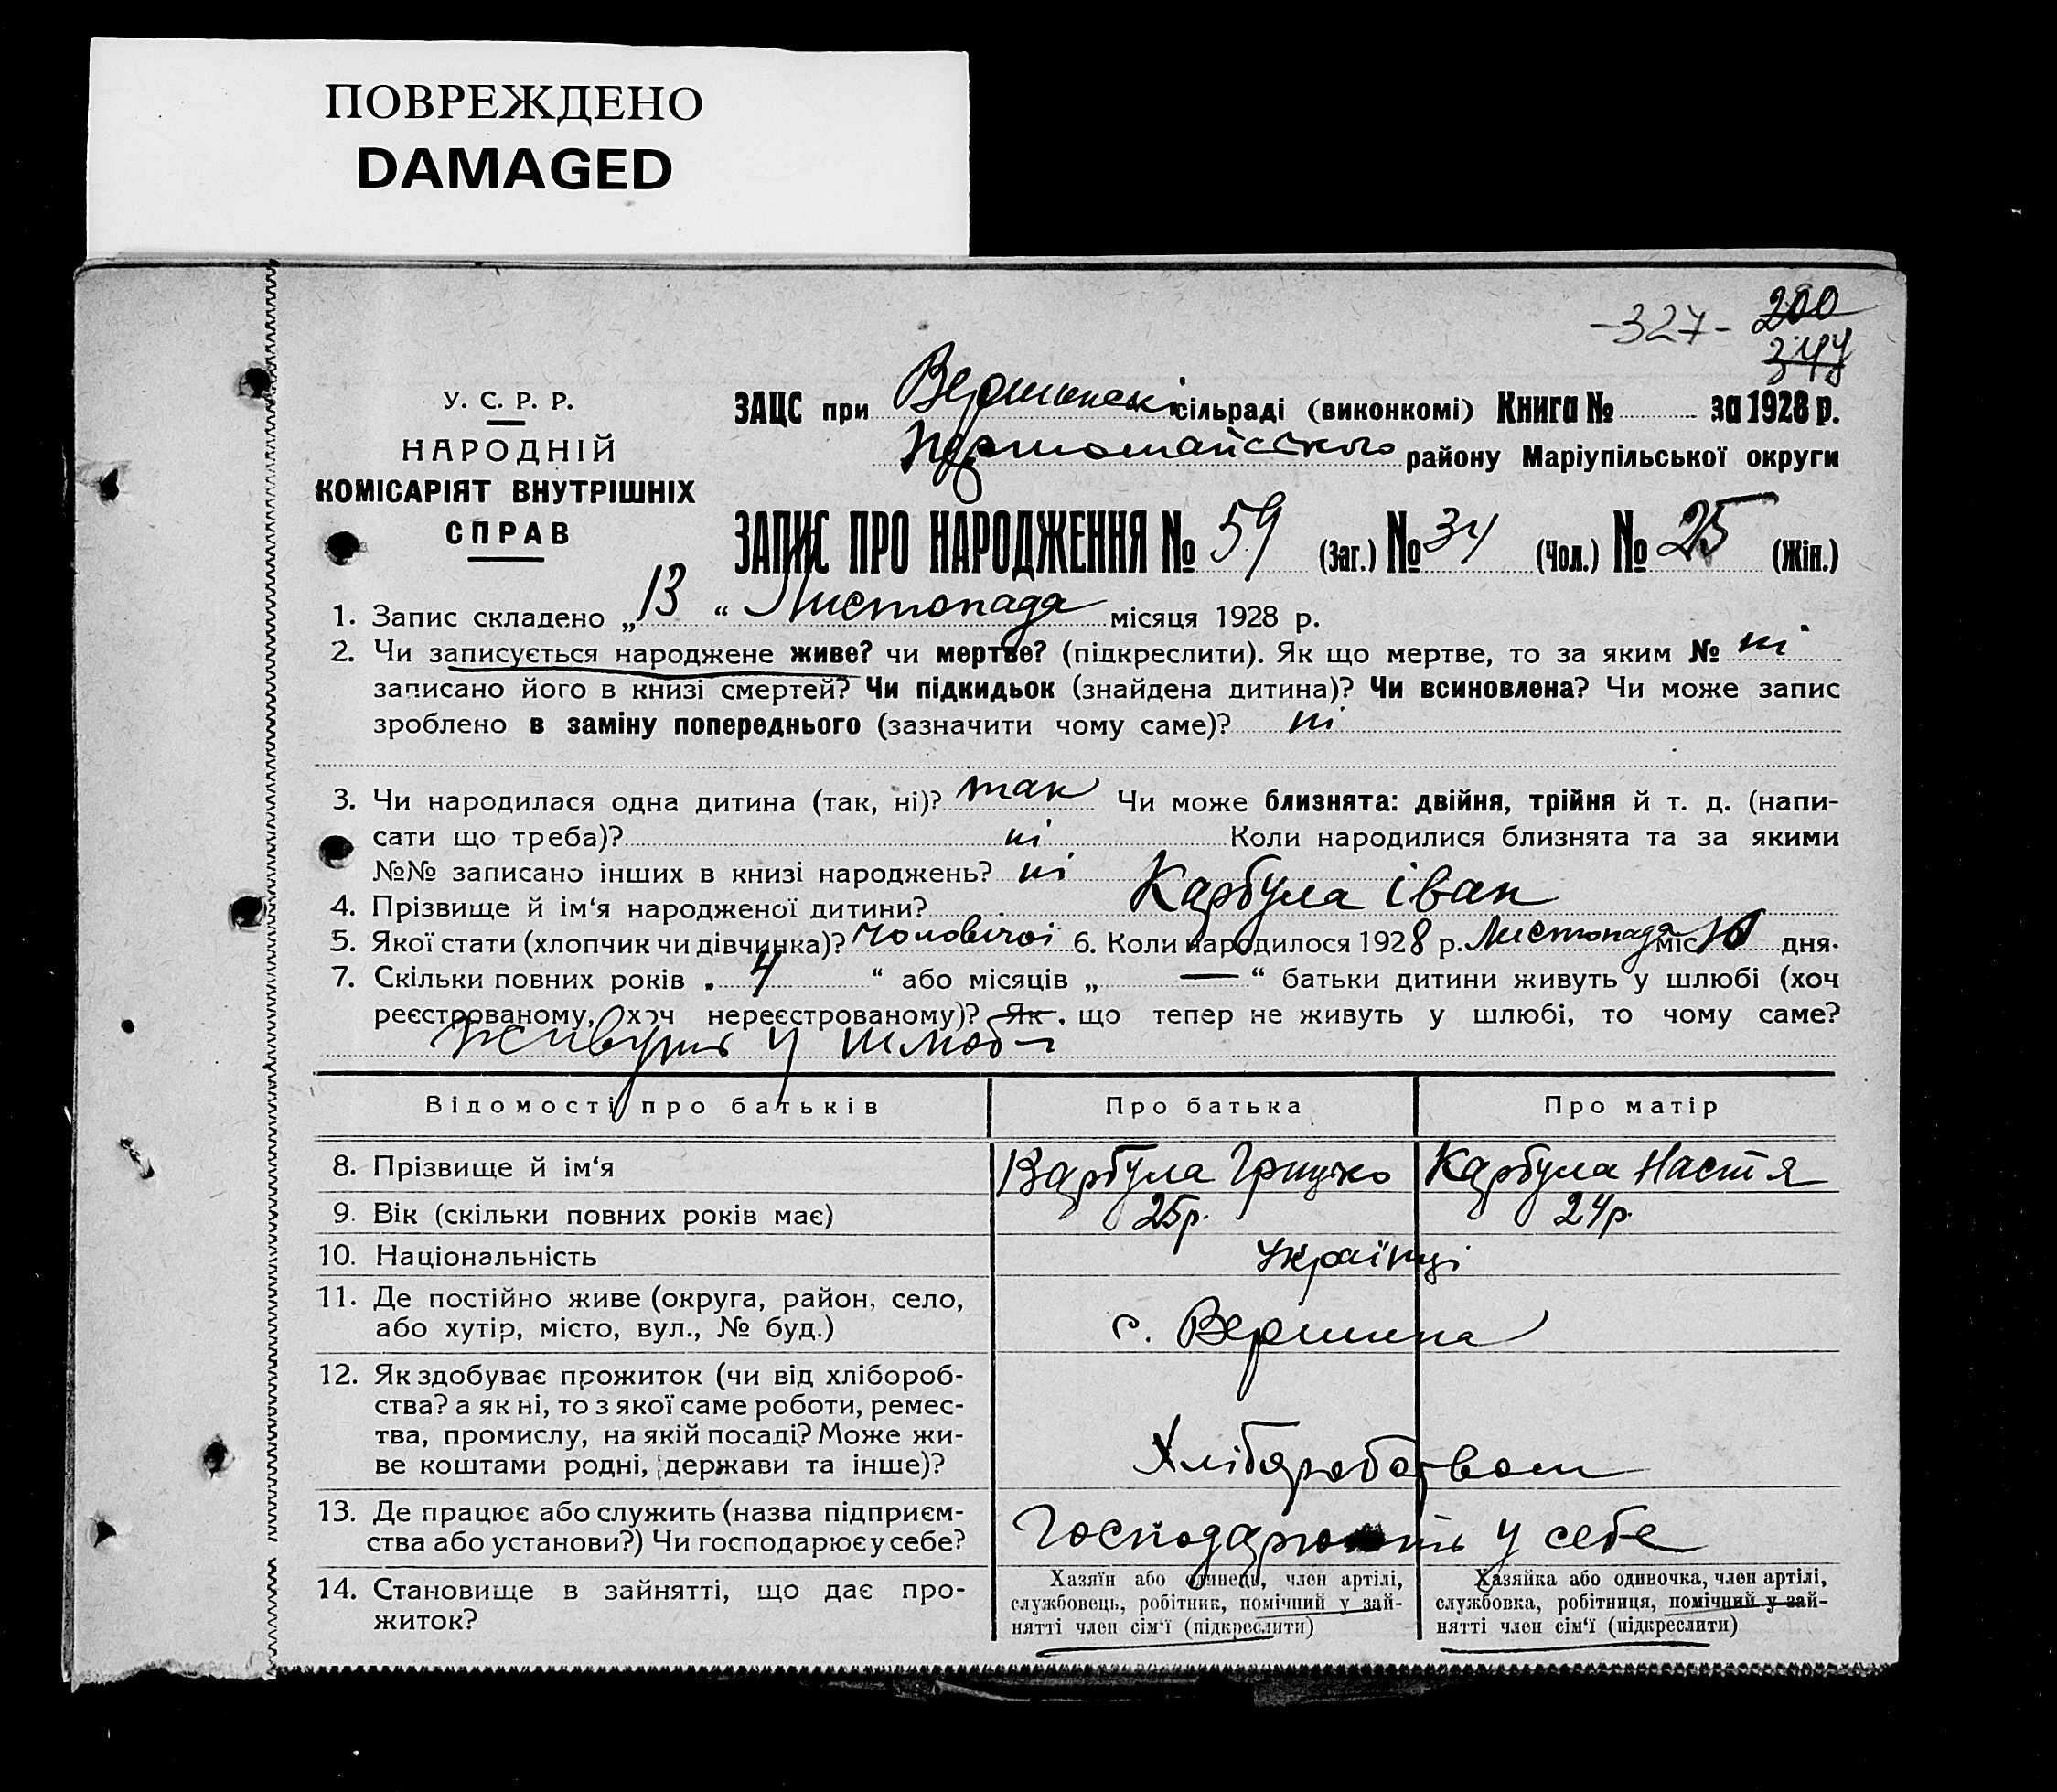 ПОВРЕЖДЕНО
DAMAGED
-327- 200
344
У. С. Р. Р.
НАРОДНІЙ
КОМІСАРІЯТ ВНУТРІШНІХ
СПРАВ
ЗАЦС при Вершинскі сільраді (виконкомі) Книга № за 1928 р.
Першомайського району Маріупільської округи
ЗАПИС ПРО НАРОДЖЕННЯ № 59 (Заг.) № 34 (Чол.) № 25 (Жін.)
1. Запис складено „13“ Листопада місяця 1928 р.
2. Чи записується народжене живе? чи мертве? (підкреслити). Як що мертве, то за яким № ні
записано його в книзі смертей? Чи підкидьок (знайдена дитина)? Чи всиновлена? Чи може запис
зроблено в заміну попереднього (зазначити чому саме)? ні
3. Чи народилася одна дитина (так, ні)? так Чи може близнята: двійня, трійня й т. д. (напи-
сати що треба)? ні Коли народилися близнята та за якими
№№ записано інших в книзі народжень? ні
4. Прізвище й ім‘я народженої дитини? Карбула Іван
5. Якої стати (хлопчик чи дівчинка)? Чоловічої 6. Коли народилось 1928 р. Листопада міс 10 дня.
7. Скільки повних років „ 4 “ або місяців „ — “ батьки дитини живуть у шлюбі (хоч
реєстрованому, хоч нереєстрованому)? Як що тепер не живуть у шлюбі, то чому саме?
Живуть у шлюбі
Відомості про батьків Про батька Про матір
8. Прізвище й ім‘я Карбула Грицько Карбула Настя
9. Вік (скільки повних років має) 25 р. 24 р.
10. Національність Українці
11. Де постійно живе (округа, район, село,
або хутір, місто, вул., № буд.) с. Вершина
12. Як здобуває прожиток (чи від хлібороб-
ства? а як ні, то з якої саме роботи, ремес-
тва, промислу, на якій посаді? Може жи-
ве коштами родні, держави та інше)? Хліборобством
13. Де працює або служить (назва підприєм-
ства або установи?) Чи господарює у себе? Господарюють у себе
14. Становище в зайнятті, що дає про-
житок?
Хазяїн або одинець, член артілі,
службовець, робітник, помічний у зай-
нятті член сім‘ї (підкреслити)
Хазяйка або одиночка, член артілі,
службовка, робітниця, помічний у зай-
нятті член сім‘ї (підкреслити)